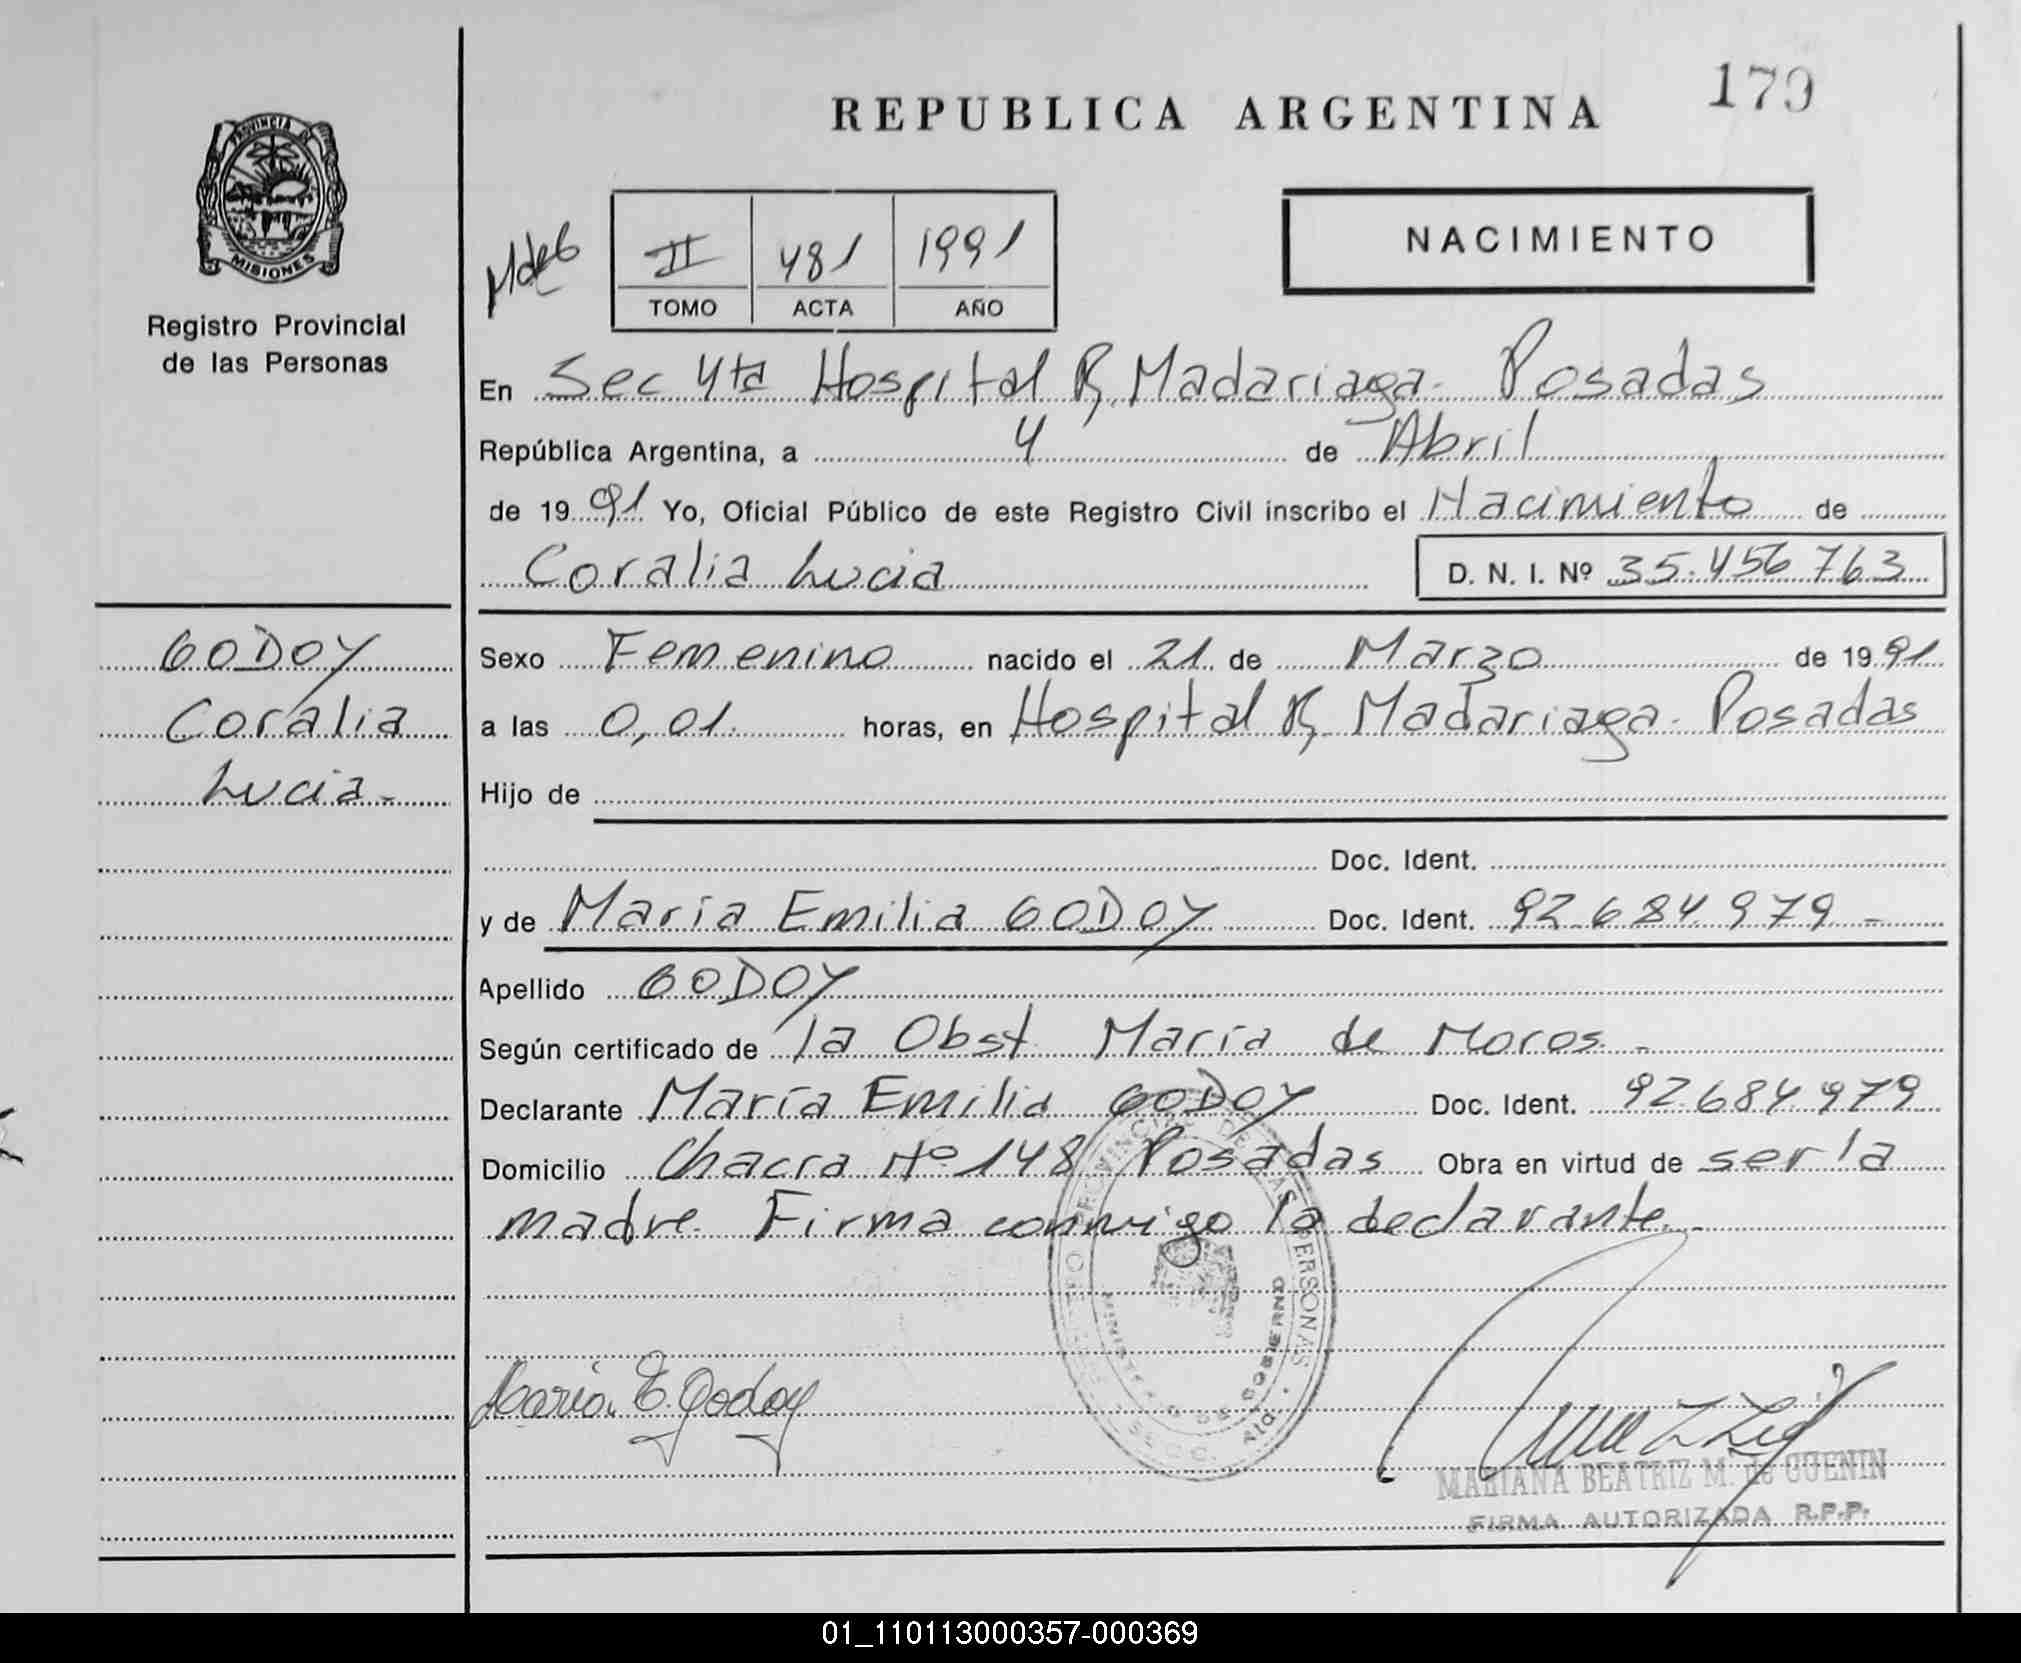 179
REPUBLICA ARGENTINA
PROVINCIA DE
MISIONES
Registro Provincial
de las Personas
NACIMIENTO
II 481 1991
TOMO ACTA AÑO
En Sec 4ta Hospital R, Madariaga - Posadas
República Argentina, a 4 de Abril
de 1991 Yo, Oficial Público de este Registro Civil inscribo el Nacimiento de
Coralia Lucia D. N. I. Nº 35.456 763
GODOY
Coralia
Lucia -
Sexo Femenino nacido el 21 de Marzo de 1991
a las 0,01. horas, en Hospital R, Madariaga - Posadas
Hijo de
Doc. Ident.
y de María Emilia GODOY Doc. Ident. 92.684.979 -
Apellido GODOY
Según certificado de la Obst María de Moros -
Declarante María Emilia GODOY Doc. Ident. 92.684.979
Domicilio Chacra Nº 148 Posadas Obra en virtud de ser la
madre. Firma conmigo la declarante -
PROVINCIAL DE LAS PERSONAS
DE GOBIERNO
María E. Godoy
MARIANA BEATRIZ M. de GUENIN
FIRMA AUTORIZADA R.P.P.
01_110113000357-000369